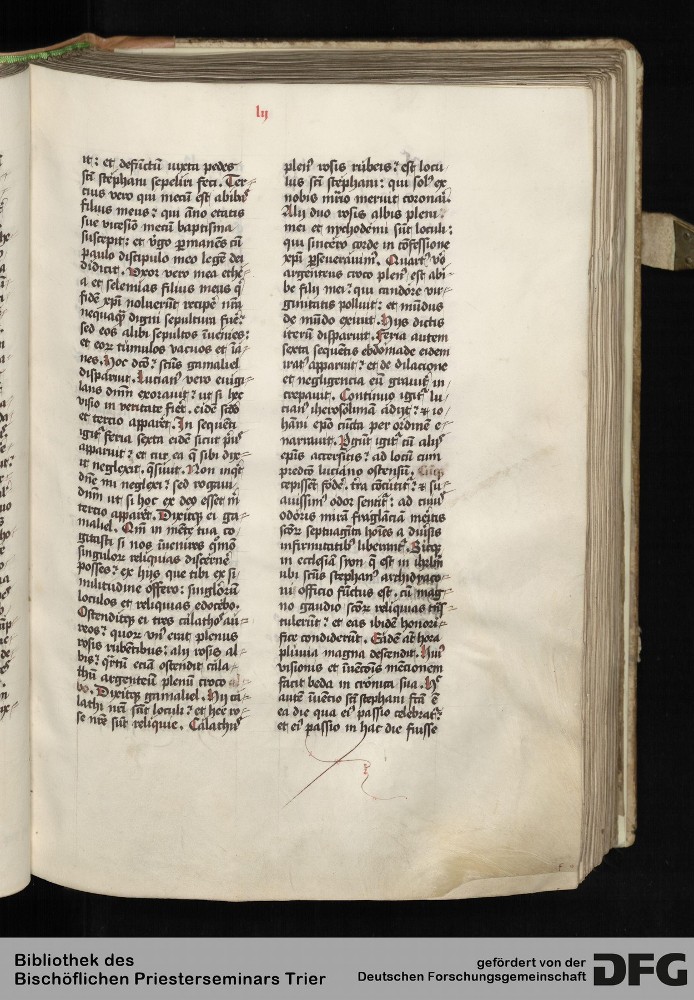 lij
it: et defunctū iuxta pedes
scī stephani sepeliri feci. Ter⸗
cius vero qui mecū est abibꝰ
filius meus: qui āno etatis
sue vicesīo mecū baptisma
suscepit: et v̄go ꝑmanēs cū
paulo discipulo meo legē dei
didicit. Vxor vero mea ethe⸗
a et selemias filius meus q̄
fidē xp̄i noluerūt recipe nr̄a
nequaq̄ digni sepultura fuer̄:
sed eos alibi sepultos īuenies:
et eoꝝ tumulos vacuos et īa⸗
nes. Hoc dcō: sctūs gamaliel
disparuit. Lucianꝰ vero euigi⸗
lans dnm̄ exorauit: ut si hec
visio in veritate fier̄. eidē scdō
et tercio apparet. In sequēti
igit᷑ feria sexta eidē sicut pͥus
apparuit: et cur ea q̄ sibi dix⸗
it neglexit. q̄siuit. Non inqͥt
dn̄e mi neglexi: sed rogaui
dnm̄ ut si hoc ex deo esset m̄
tercio apparet. Dixitqꝫ ei ga⸗
maliel. Qm̄ in mēte tua co⸗
gitasti si nos īuenires qͦmō
singuloꝝ reliquias discerne
posses: ex hijs que tibi ex si⸗
militudine offero: singuloꝝ
loculos et reliquias edocebo.
Ostenditqꝫ ei tres calathos au⸗
reos: quoꝝ vnꝰ erat plenus
rosis rubentibus: alij rosis al⸗
bis: q̄rtū eciā ostendit cala⸗
thū argenteū plenū croco al⸗
bo. Dixitqꝫ gamaliel. Hij ca⸗
lathi nr̄i sūt loculi: et hee ro⸗
se nr̄e sūt reliquie. Calathus
plenꝰ rosis rubeis: est locu⸗
lus scī stephani: qui solꝰ ex
nobis mr̄io meruit coronari.
Alij duo rosis albis pleni:
mei et nychodemi sūt loculi:
qui sincero corde in cōfessione
xp̄i ꝑseuerauimꝰ. Quartꝰ v̄o
argenteus croco plenꝰ est abi⸗
be filij mei: qui candore vir⸗
ginitatis polluit: et mūdus
de mūdo exiuit. Hijs dictis
iterū disparuit. Feria autem
sexta sequētis ebdomade eidem
iratꝰ apparuit: et de dilacione
et negligencia eū grauit̄ in⸗
crepauit. Continuo igit᷑ lu⸗
cianꝰ iherosolimā adijt: ⁊ io⸗
hāni epō cūcta per ordinē e⸗
narrauit. Vgūt igit᷑ cū alijs
ep̄is accersitis: ad locū cum
predcō luciano ostensū. Cūqꝫ
cepissēt fode. tr̄a cōcutit᷑: ⁊ su⸗
auissimꝰ odor sentit᷑: ad cuiꝰ
odoris mirā fraglāciā meritis
scōꝝ septuagīta hoīes a diūsis
infirmitatibꝰ liberant᷑. Sicqꝫ
in ecclesiā syon q̄ est in ihrlm̄
ubi sctūs stephanꝰ archidyaco⸗
ni officio fūctus est. cū mag⸗
no gaudio scōꝝ reliquias trās⸗
tulerūt: et eas ibidē honori⸗
fice condiderūt. Eidē at hora
pluuia magna descendit. Huiꝰ
visionis et īuencois mencionem
facit beda in cronica sua. Hec
autē īuētio sctī stephani scā ē
ea die qua eiꝰ passio celebrat᷑:
et eiꝰ passio in hac die fuisse
Bibliothek des
Bischöflichen Priesterseminars Trier
gefördert von der
Deutschen Forschungsgemeinschaft
DFG